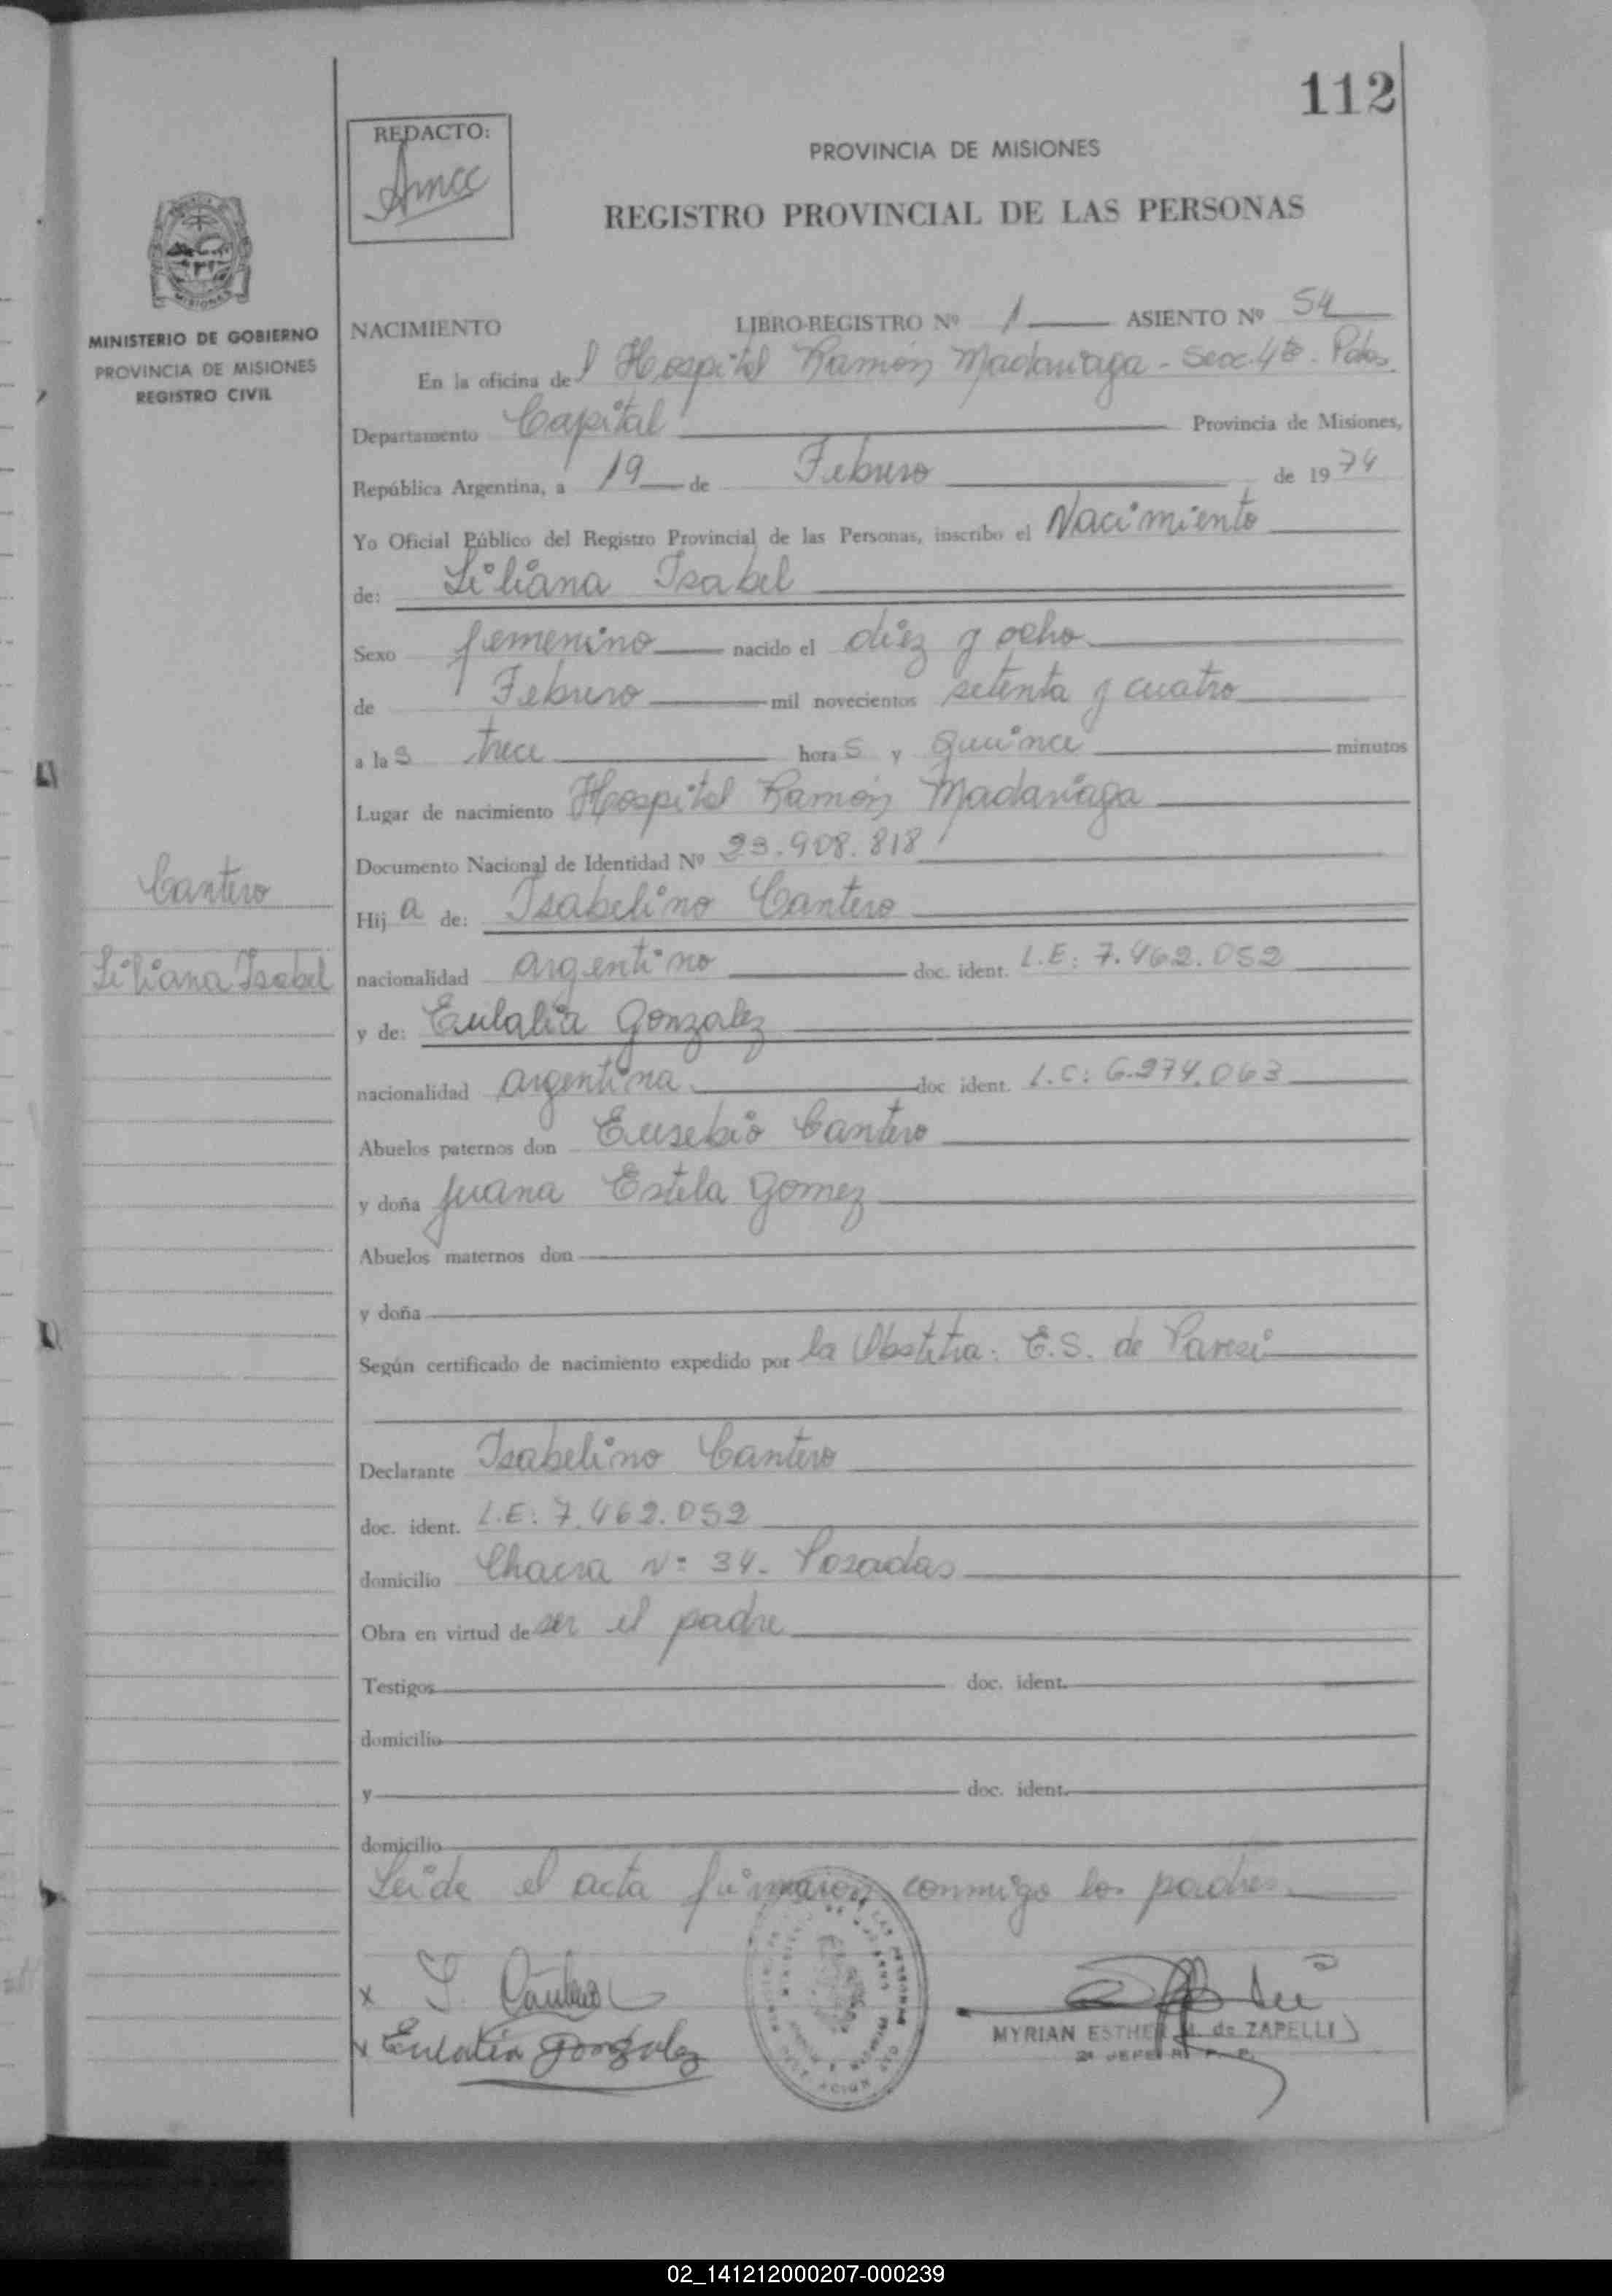 112
REDACTO:
Amcc
PROVINCIA DE MISIONES
REGISTRO PROVINCIAL DE LAS PERSONAS
MISIONES
MINISTERIO DE GOBIERNO
PROVINCIA DE MISIONES
REGISTRO CIVIL
NACIMIENTO LIBRO-REGISTRO Nº 1 ASIENTO Nº 54
En la oficina del Hospital Ramón Madariaga - Secc. 4ta - Pdas.
Departamento Capital Provincia de Misiones,
República Argentina, a 19 de Febrero de 1974
Yo Oficial Público del Registro Provincial de las Personas, inscribo el Nacimiento
de: Liliana Isabel
Sexo femenino nacido el diez y ocho
de Febrero mil novecientos setenta y cuatro
a las trece horas y quince minutos
Lugar de nacimiento Hospital Ramón Madariaga
Documento Nacional de Identidad Nº 23.908.818
Cantero
Hija de: Isabelino Cantero
Liliana Isabel
nacionalidad argentino doc. ident. L.E: 7.462.052
y de: Eulalia Gonzalez
nacionalidad argentina doc ident. L.C: 6.274.063
Abuelos paternos don Eusebio Cantero
y doña Juana Estela Gomez
Abuelos maternos don
y doña
Según certificado de nacimiento expedido por la Obstetra: E.S. de Paresi
Declarante Isabelino Cantero
doc. ident. L.E: 7.462.052
domicilio Chacra Nº 34- Posadas
Obra en virtud de ser el padre
Testigos doc. ident.
domicilio
y doc. ident.
domicilio
Leida el acta firmaron conmigo los padres
x I. Cantero
x Eulalia Gonzalez
MYRIAN ESTHER de ZAPELLI
2º JEFE R. P. P.
02_141212000207-000239